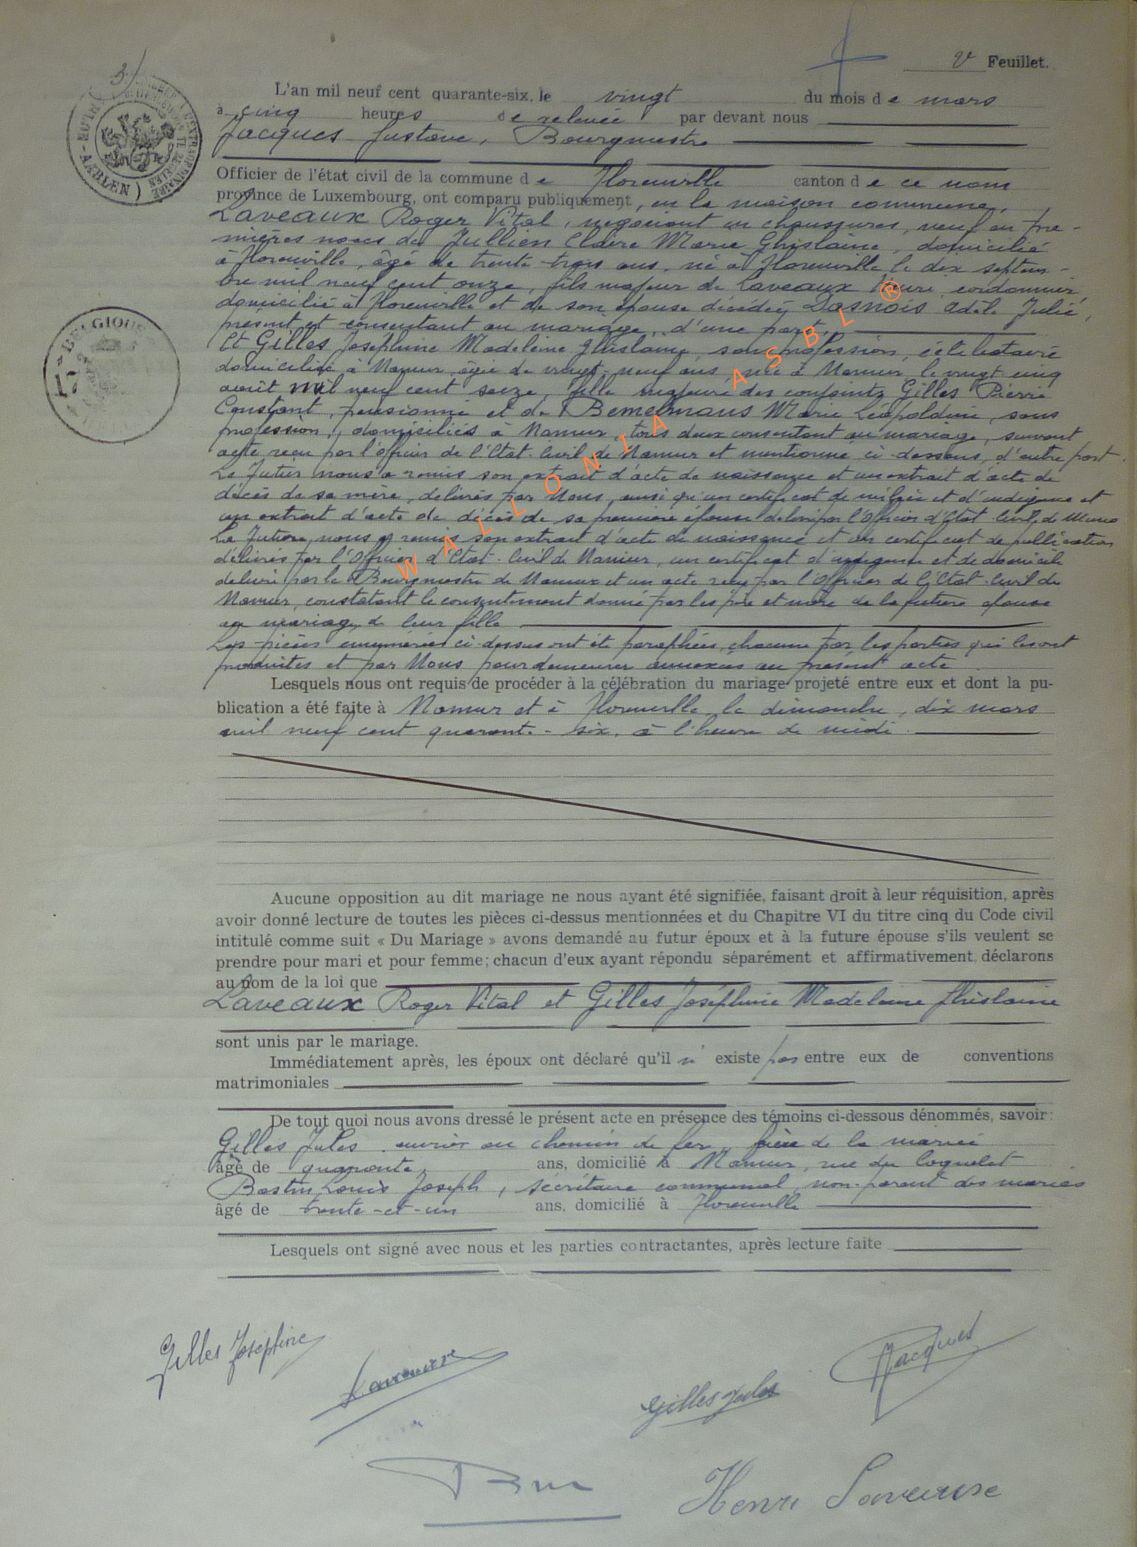 3/
V Feuillet.
L'an mil neuf cent quarante-six, le vingt du mois de mars
à cinq heures de relevée par devant nous
Jacques Gustave, Bourgmestre
Officier de l'état civil de la commune de Florenville canton de ce nom
province de Luxembourg, ont comparu publiquement, en la maison commune,
Laveaux Roger Vital, négociant en chaussures, veuf en pre-
mières noces de Jullien Claire Marie Ghislaine, domicilié
à Florenville, âgé de trente-trois ans, né à Florenville le dix septem-
bre mil neuf cent onze, fils majeur de Laveaux Henri, cordonnier,
domicilié à Florenville et de son épouse décédée Dasnois Adèle Julie,
présent et consentant au mariage, d'une part,
Et Gilles Joséphine Madeleine Ghislaine, sans profession, célibataire
domiciliée à Namur, âgée de vingt-neuf ans, née à Namur, le vingt cinq
août mil neuf cent seize, fille majeure des conjoints Gilles Pierre
Constant, pensionné et de Bemelmans Marie Léopoldine, sans
profession, domiciliés à Namur, tous deux consentant au mariage, suivant
acte reçu par l'Officier de l'Etat-Civil de Namur et mentionné ci-dessous, d'autre part.
Le futur nous a remis son extrait d'acte de naissance et un extrait d'acte de
décès de sa mère, délivrés par Nous, ainsi qu'un certificat de milice et d'indigence et
un extrait d'acte de décès de sa première épouse délivré par l'Officier d'Etat-Civil de
La future, nous a remis son extrait d'acte de naissance et un certificat de publication
délivrés par l'Officier d'Etat-Civil de Namur, un certificat d'indigence et de domicile
délivré par le Bourgmestre de Namur et un acte reçu par l'Officier de l'Etat-Civil de
Namur, constatant le consentement donné par les père et mère de la future épouse
au mariage de leur fille
Les pièces énumérées ci-dessus ont été paraphées, chacune par les parties qui les ont
produites et par Nous pour demeurer annexées au présent acte
Lesquels nous ont requis de procéder à la célébration du mariage projeté entre eux et dont la pu-
blication a été faite à Namur et à Florenville le dimanche, dix mars
mil neuf cent quarante-six, à l'heure de midi.
Aucune opposition au dit mariage ne nous ayant été signifiée, faisant droit à leur réquisition, après
avoir donné lecture de toutes les pièces ci-dessus mentionnées et du Chapitre VI du titre cinq du Code civil
intitulé comme suit « Du Mariage » avons demandé au futur époux et à la future épouse s'ils veulent se
prendre pour mari et pour femme; chacun d'eux ayant répondu séparément et affirmativement, déclarons
au nom de la loi que
Laveaux Roger Vital et Gilles Joséphine Madeleine Ghislaine
sont unis par le mariage.
Immédiatement après, les époux ont déclaré qu'il n'existe pas entre eux de conventions
matrimoniales
De tout quoi nous avons dressé le présent acte en présence des témoins ci-dessous dénommés, savoir:
Gilles Jules ouvrier au chemin de fer, frère de la mariée
âgé de quarante ans, domicilié à Namur, rue du Coquelet
Bastin Louis Joseph, secrétaire communal, non-parent des mariés
âgé de trente-et-un ans, domicilié à Florenville
Lesquels ont signé avec nous et les parties contractantes, après lecture faite
Gilles Joséphine
Gilles Jules
Jacques
Henri Laveaux
BELGIQUE
WALLONIA ASBL ®